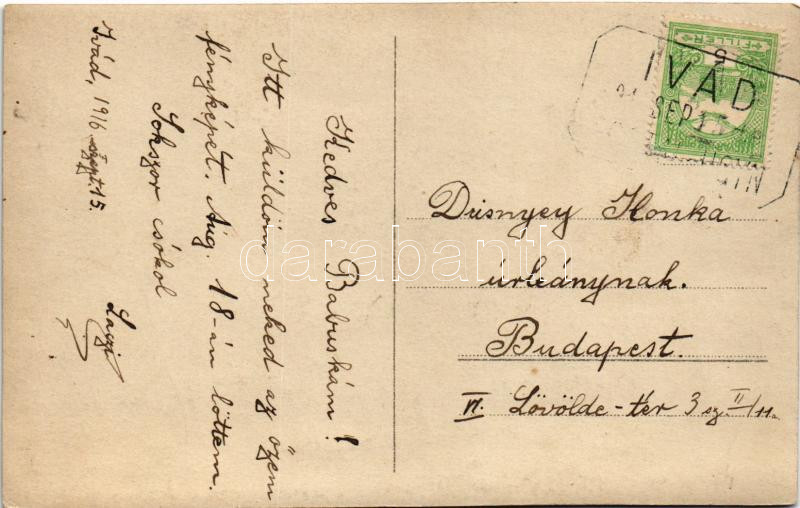 Ivád, 1916 szept. 15.
Kedves Babuskám!
Itt küldöm neked az őzem
fényképét. Aug. 18-án lőttem.
Sokszor csókol
Laczi
5
FILLÉR
IVÁD
SEP 15
Dusnyey Ilonka
úrleánynak.
Budapest.
VI. Lövölde-tér 3 sz. II/11.
darabanth